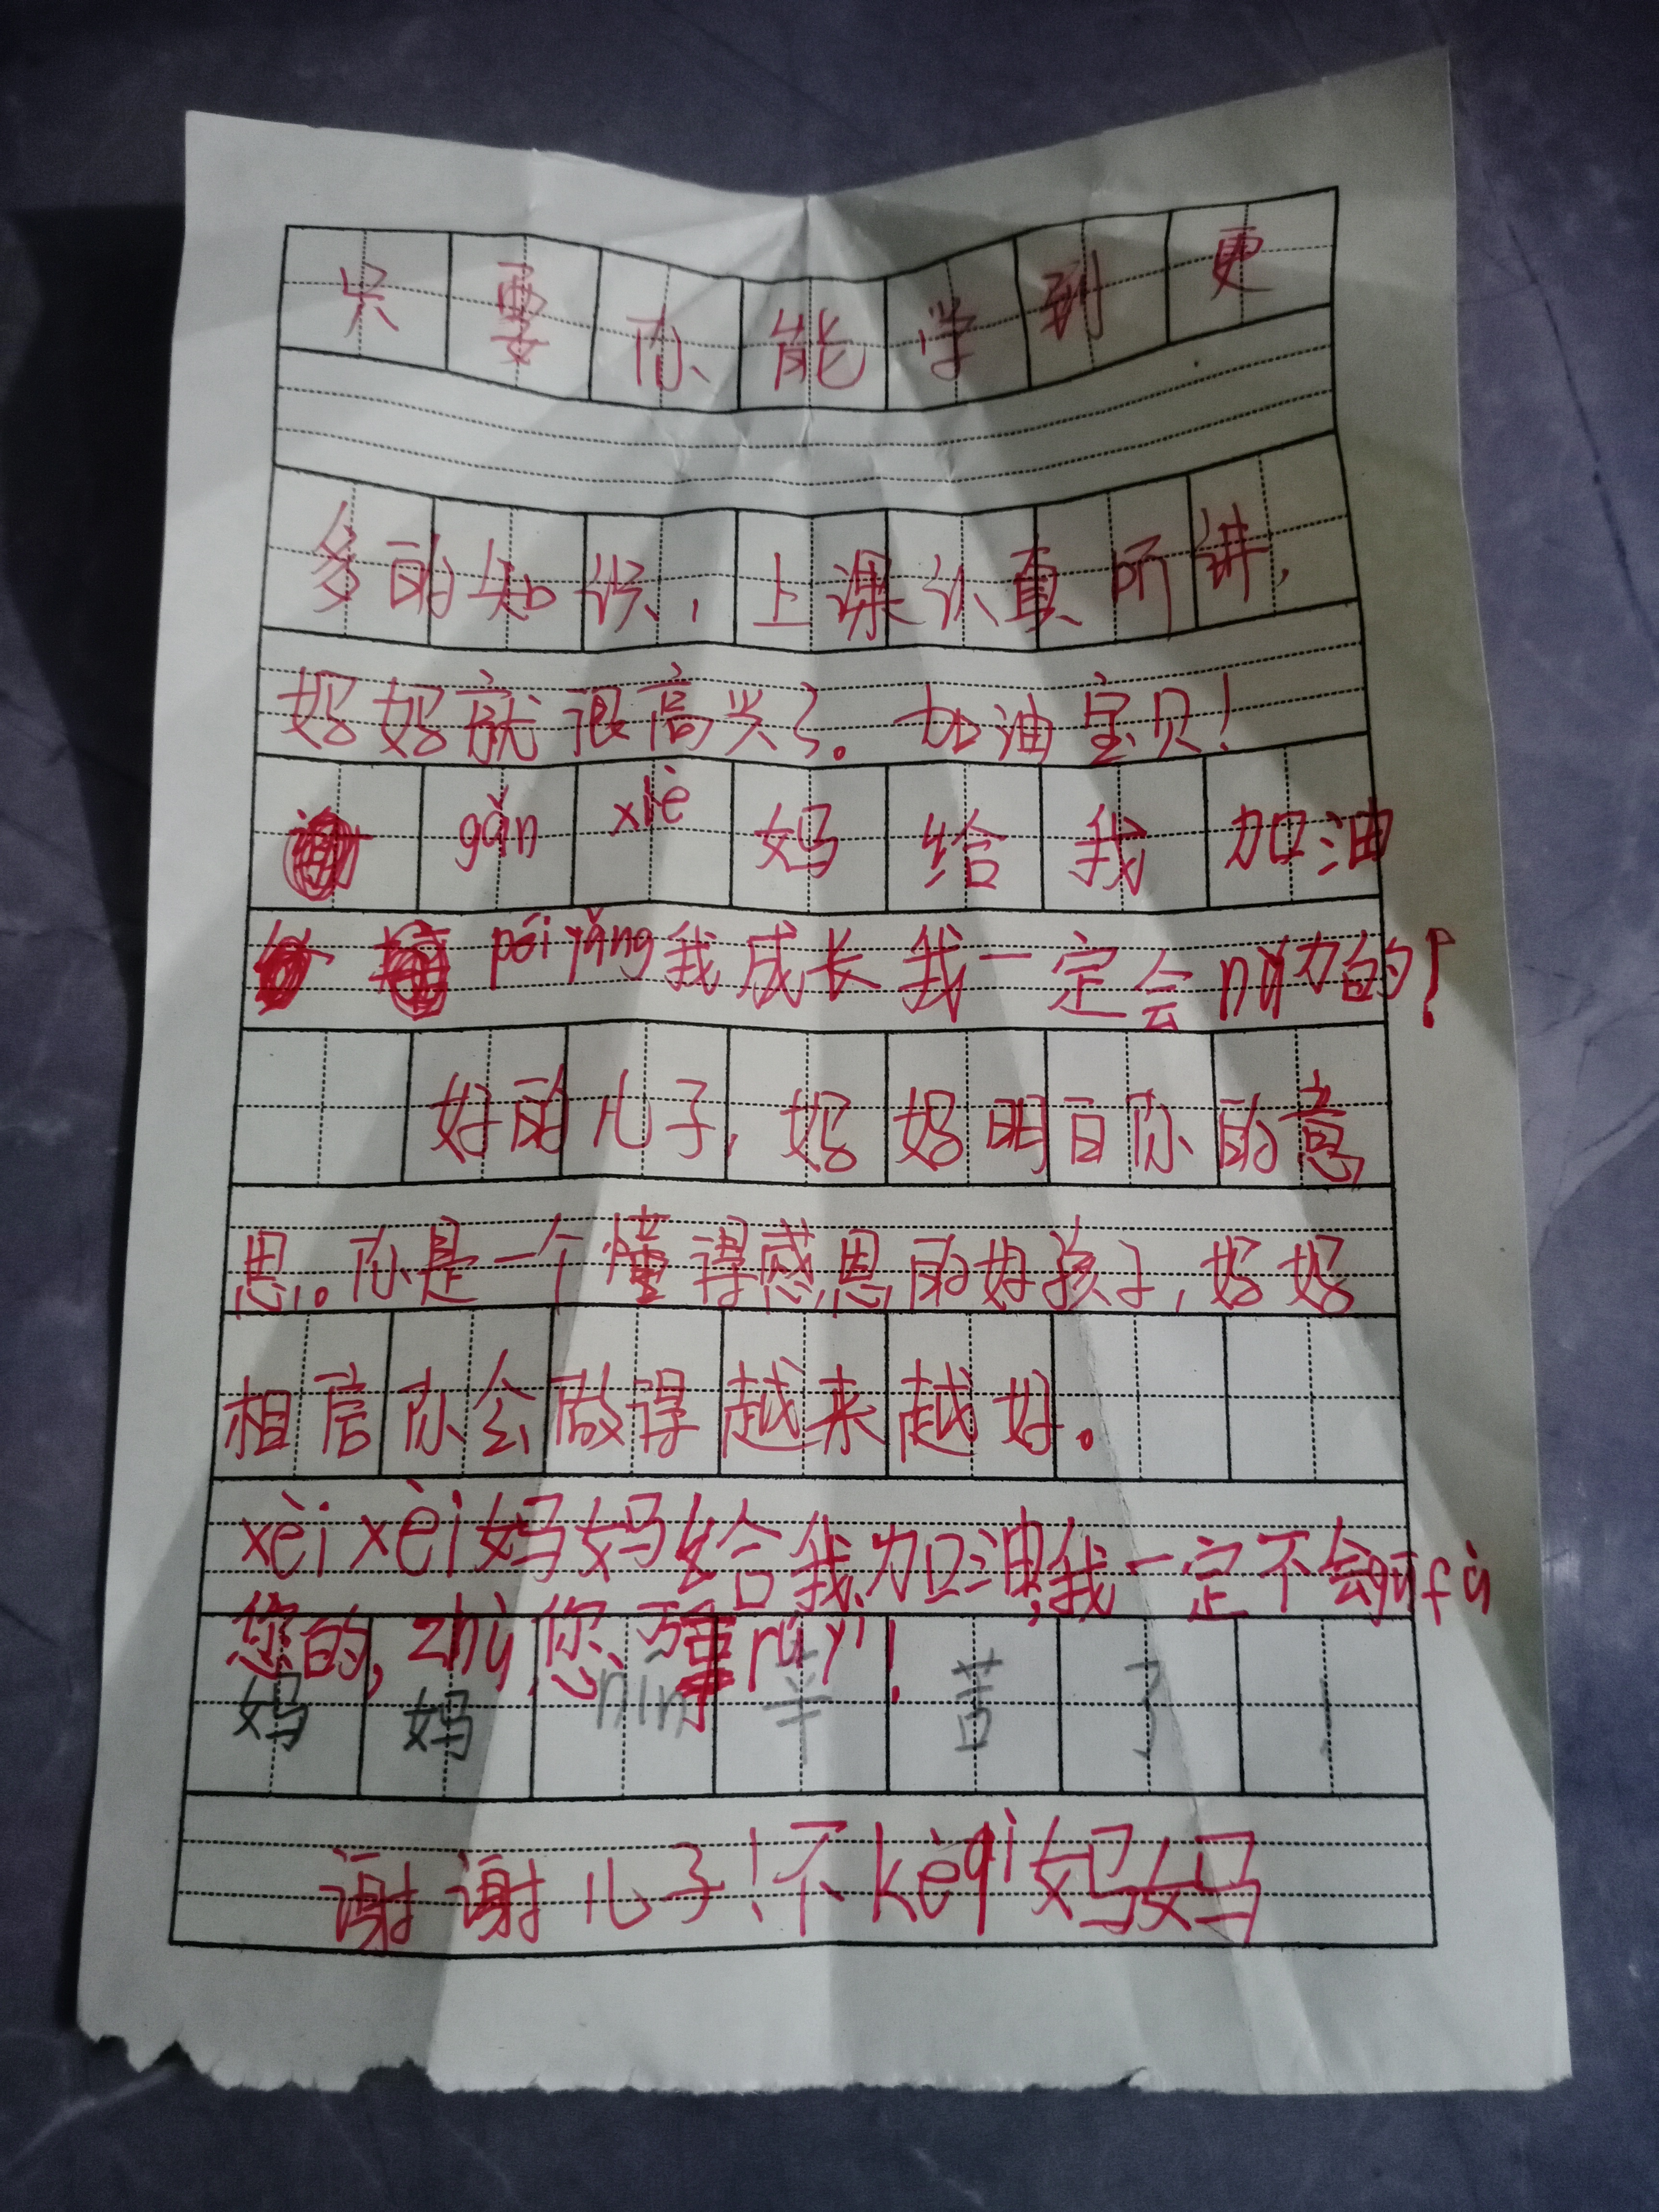 只要你能学到更
多的知识,上课认真听讲,
妈妈就很高兴了。加油宝贝!
gǎn xiè 妈给我加油
péi yǎng 我成长我一定会nǔ力的!
好的儿子,妈妈明白你的意
思。你是一个懂得感恩的好孩子,妈妈
相信你会做得越来越好。
xèi xèi妈妈给我加油,我一定不会gūfù
您的,zhù您万事rúyì!
妈妈nín辛苦了!
谢谢儿子!不kèqì妈妈